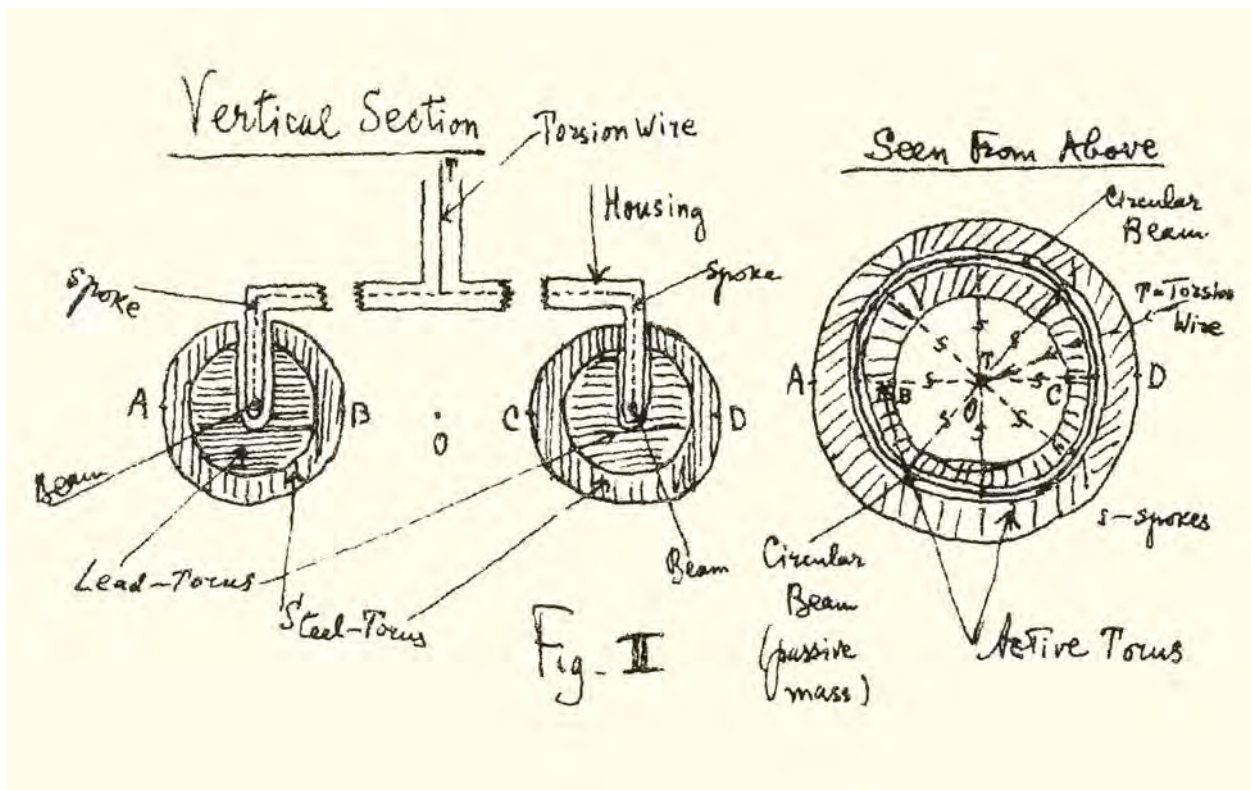 Vertical Section
Torsion Wire
T
Housing
Spoke
Spoke
A
B
O
C
D
Beam
Beam
Lead-Torus
Steel-Torus
Fig. II
Seen From Above
Circular
Beam
T-Torsion
Wire
A
B
C
D
T
O
s
s
s
s
s
s
s
s
s-spokes
Circular
Beam
(passive
mass)
Active Torus